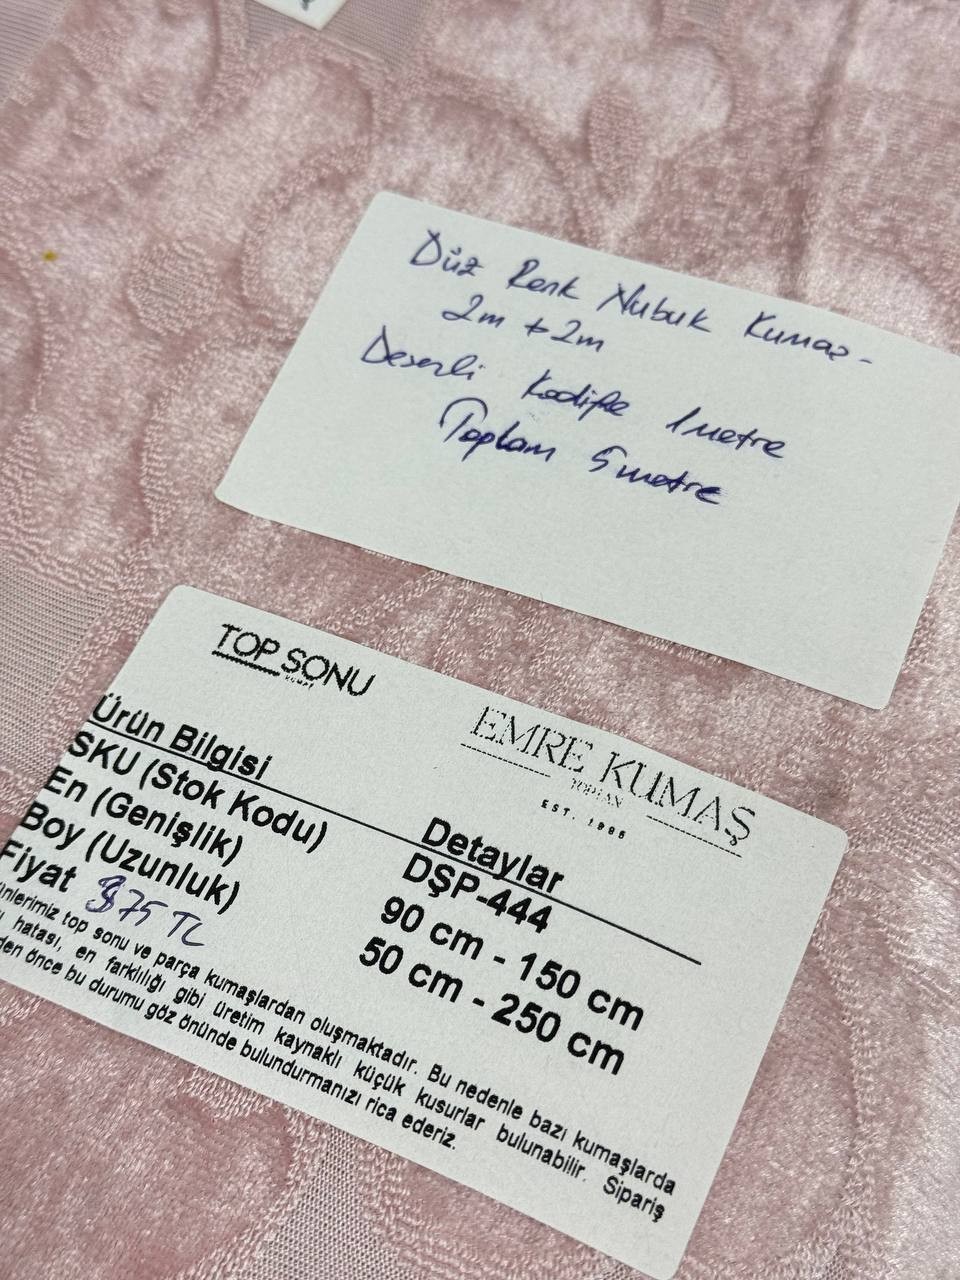 Düz Renk Nubuk Kumaş -
2m + 2m
Desenli Kadife 1 metre
Toplam 5 metre
TOP SONU
KUMAŞ
EMRE KUMAŞ
TOPTAN
EST. 1995
Ürün Bilgisi Detaylar
SKU (Stok Kodu) DŞP-444
En (Genişlik) 90 cm - 150 cm
Boy (Uzunluk) 50 cm - 250 cm
Fiyat 75 TL
top sonu ve parça kumaşlardan oluşmaktadır. Bu nedenle bazı kumaşlarda
hatası, en farklılığı gibi üretim kaynaklı küçük kusurlar bulunabilir. Sipariş
önce bu durumu göz önünde bulundurmanızı rica ederiz.